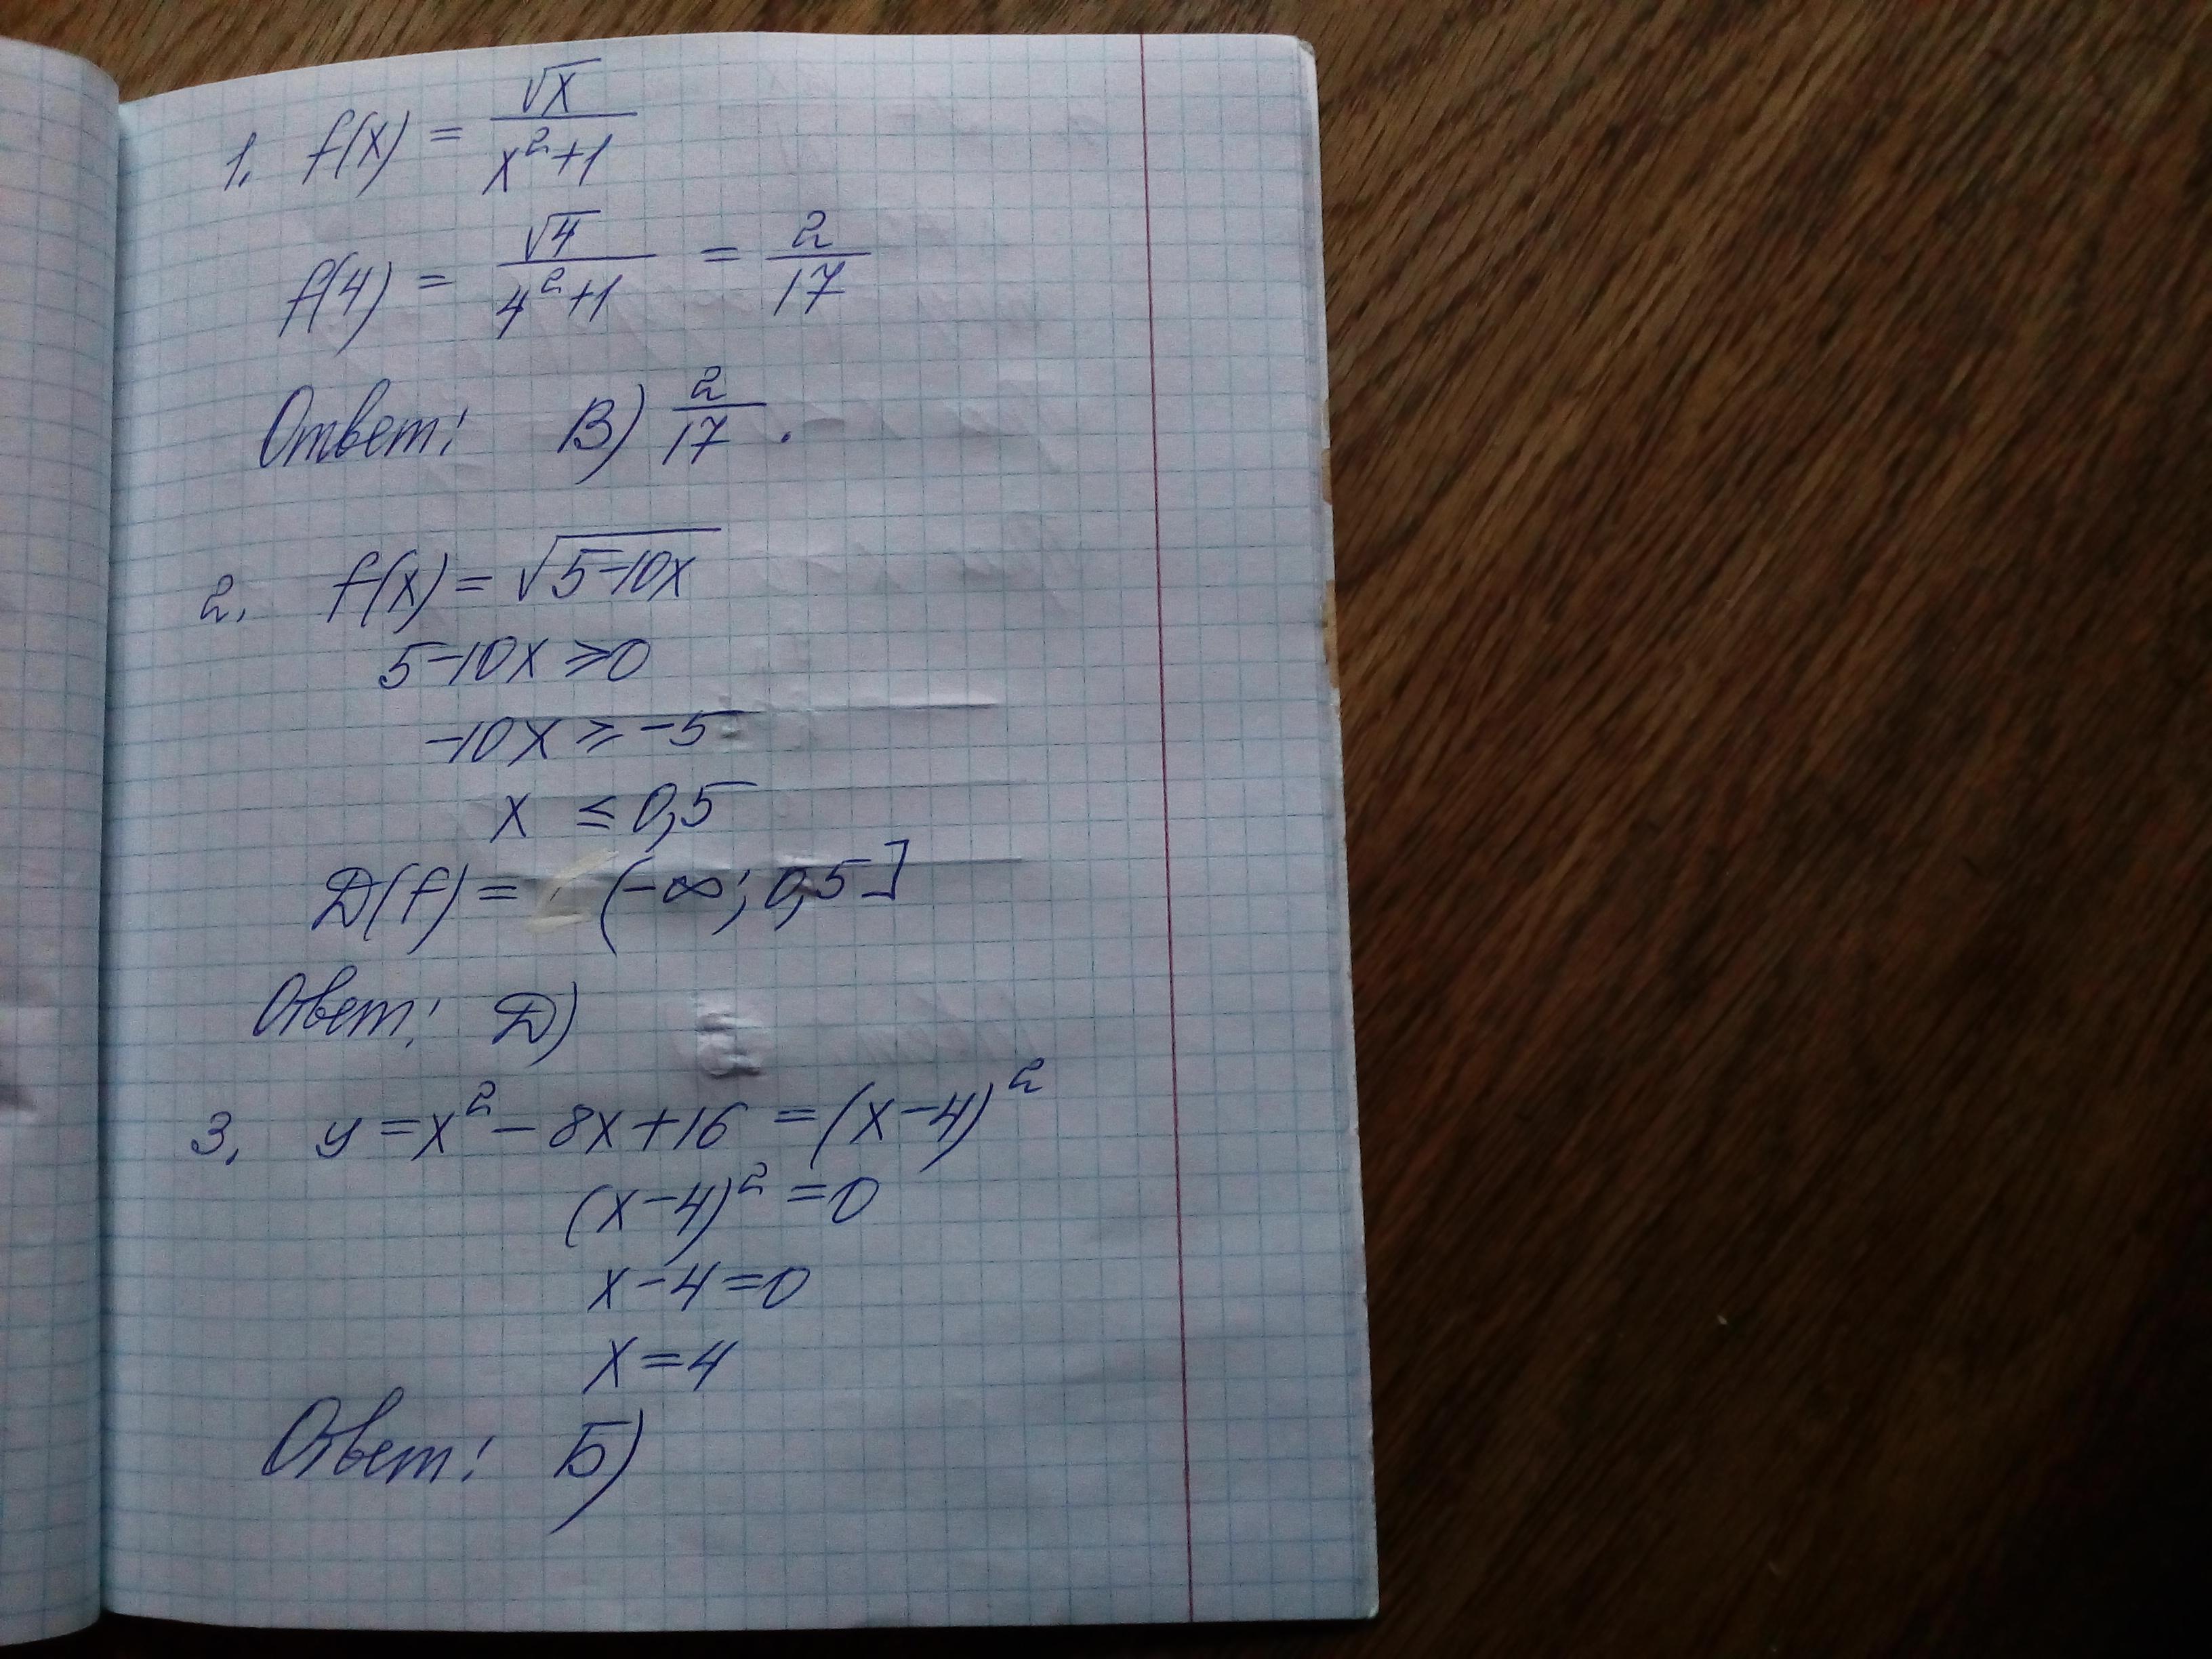 1. f(x) = √x / (x²+1)
f(4) = √4 / (4²+1) = 2/17
Ответ: В) 2/17.
2. f(x) = √(5-10x)
5-10x ≥ 0
-10x ≥ -5
x ≤ 0,5
D(f) = (-∞; 0,5]
Ответ: D)
3. y = x² - 8x + 16 = (x-4)²
(x-4)² = 0
x-4 = 0
x = 4
Ответ: Б)